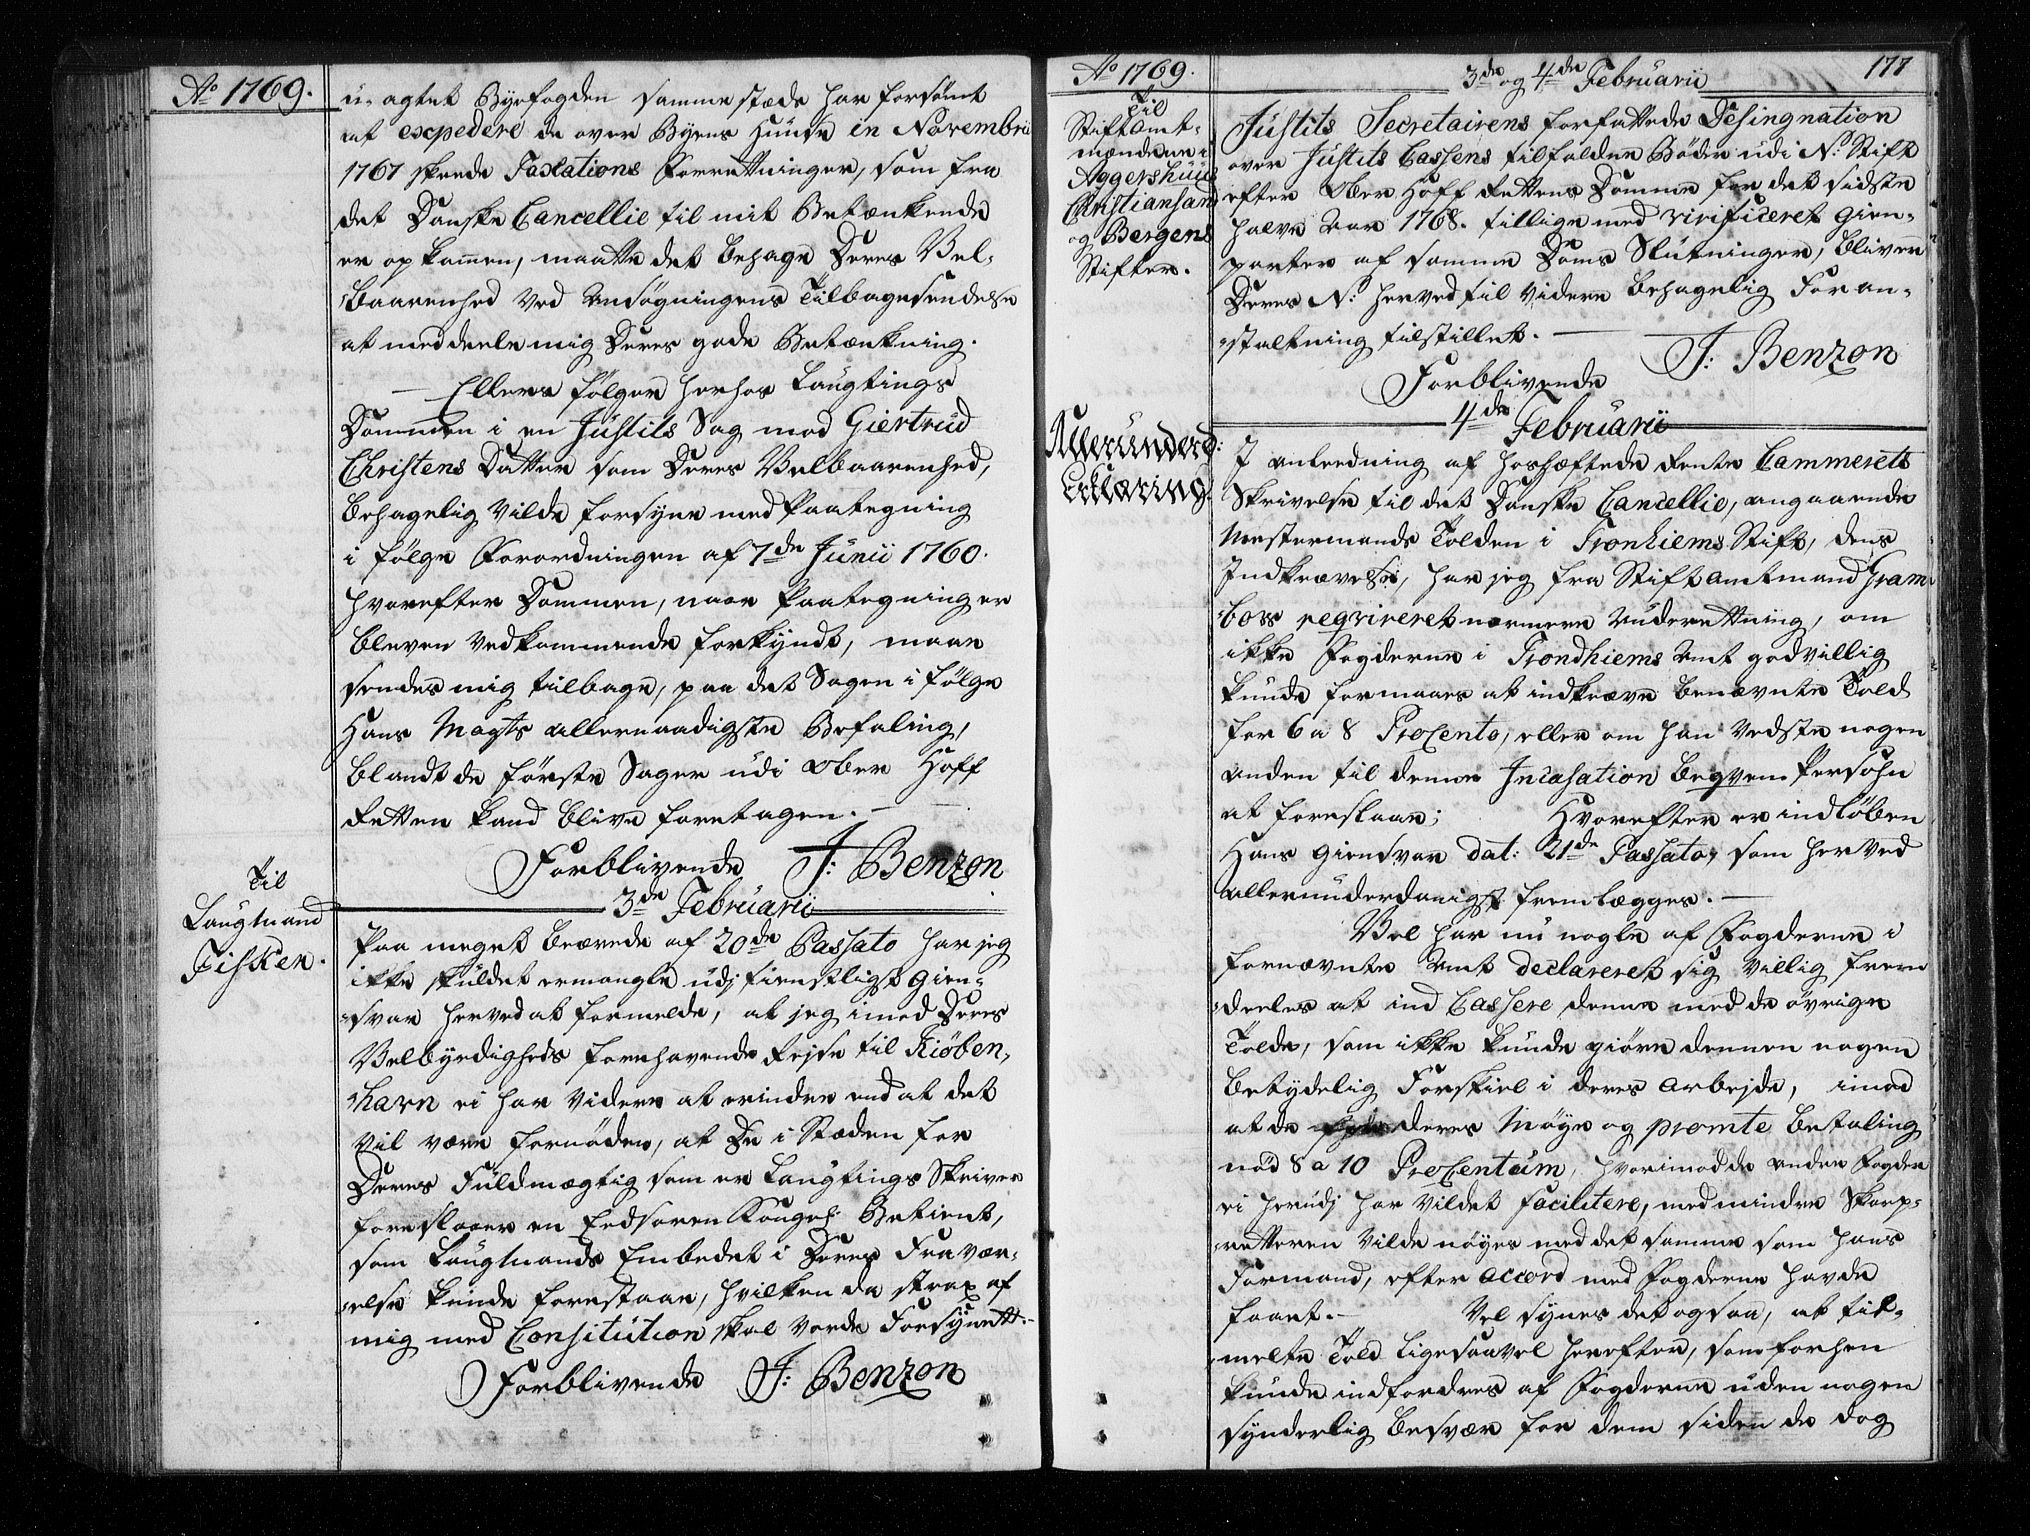 Ao 1769.
u-agtet Byefogden sammestæds har forsømt
at expedere de over Byens Huuse in Novembri
1767 skeede Taxations Forretninger, som fra
det Danske Cancellie til mit Betænkende
er opkommen, maatte det behage Deres Vel-
baarenhed ved Ansøgningens Tilbagesendelse
at meddeele mig Deres gode Betænkning.
Ellers følger herhos Laugtings
Dommen i en Justits Sag mod Giertrud
Christens Datter som Deres Velbaarenhed,
behagelig vilde forsyne med Paategning
i følge Forordningen af 7de Junii 1760.
hvorefter Dommen, naar Paategning er
bleven vedkommende forkyndt, maae
sendes mig tilbage, paa det Sagen i følge
Hans Mayts allernaadigste Befaling,
blandt de første Sager udi Ober Hoff
Retten kand blive foretagen.
Forblivende J: Benzon
3de Februarii
Til
Laugmand
Fisken.
Paa meget beærede af 20de Passato har jeg
ikke skuldet ermangle udj tienstligst Gien-
svar herved at formelde, at jeg imod Deres
Velbyrdigheds forehavende Rejse til Kiøben-
havn ei har videre at erindre end at det
vil være fornøden, at De i Stæden for
Deres Fuldmægtig som er Laugtings Skriver
foreslaaer en Eedsoren Kongel: Betient,
som Laugmands Embedet i Deres Fravær-
else kunde forestaae, hvilken da strax af
mig med Consitution skal vorde Forsynett.
Forblivende J: Benzon
Ao 1769.
3de og 4de Februarii
177
Til
Stiftamt-
mændene i
Aggershuus
Christiansand
og Bergens
Stifter.
Justits Secretairens forfattede Designation
over Justits Cassens tilfaldne Bøder udi N: Stift
efter Ober Hoff Rettens Domme for det sidste
halve Aar 1768. tillige med virificeret Gien-
parter af samme Doms Slutninger, bliver
Deres N: herved til videre behagelig Foran-
staltning tilstillet.
Forblivende J: Benzon
4de Februarii
Allerunderd:
Erklæring.
I anleedning af hoshæftede Rente Cammerets
Skrivelse til det Danske Cancellie, angaaende
Mestermands Tolden i Tronhiems Stift, dens
Indkrævelse, har jeg fra Stiftamtmand Gram-
bow reqvireret nærmere Underrettning, om
ikke Fogderne i Trondhiems Amt godvillig
kunde formaaes at indkræve benævnte Told
for 6 a 8 ProCento, eller om han vedste nogen
anden til denne Incasation beqvem Persohn
at foreslaae; Hvorefter er indløben
Hans Giensvar dat: 21de Passato, som herved
allerunderdanigst fremlægges.
Vel har nu nogle af Fogderne i
fornævnte Amt declareret sig villig frem-
deeles at ind Cassere denne med de øvrige
Tolde, som ikke kunde giøre dennen nogen
betydelig Forskiel i deres Arbejde, imod
at de deres Møye og promte Betaling
nød 8 a 10 ProCentum, hvorimod de andre Fogder
ei herudj har vildet facilitere, med mindre Skarp-
retteren vilde nøyes med det samme som hans
Formand, efter Accord med Fogderne havde
faaet. Vel synes det ogsaa, at til-
melte Told ligesaavel herefter, som forhen
kunde indfordres af Fogderne uden nogen
synderlig besvær for dem siden de dog